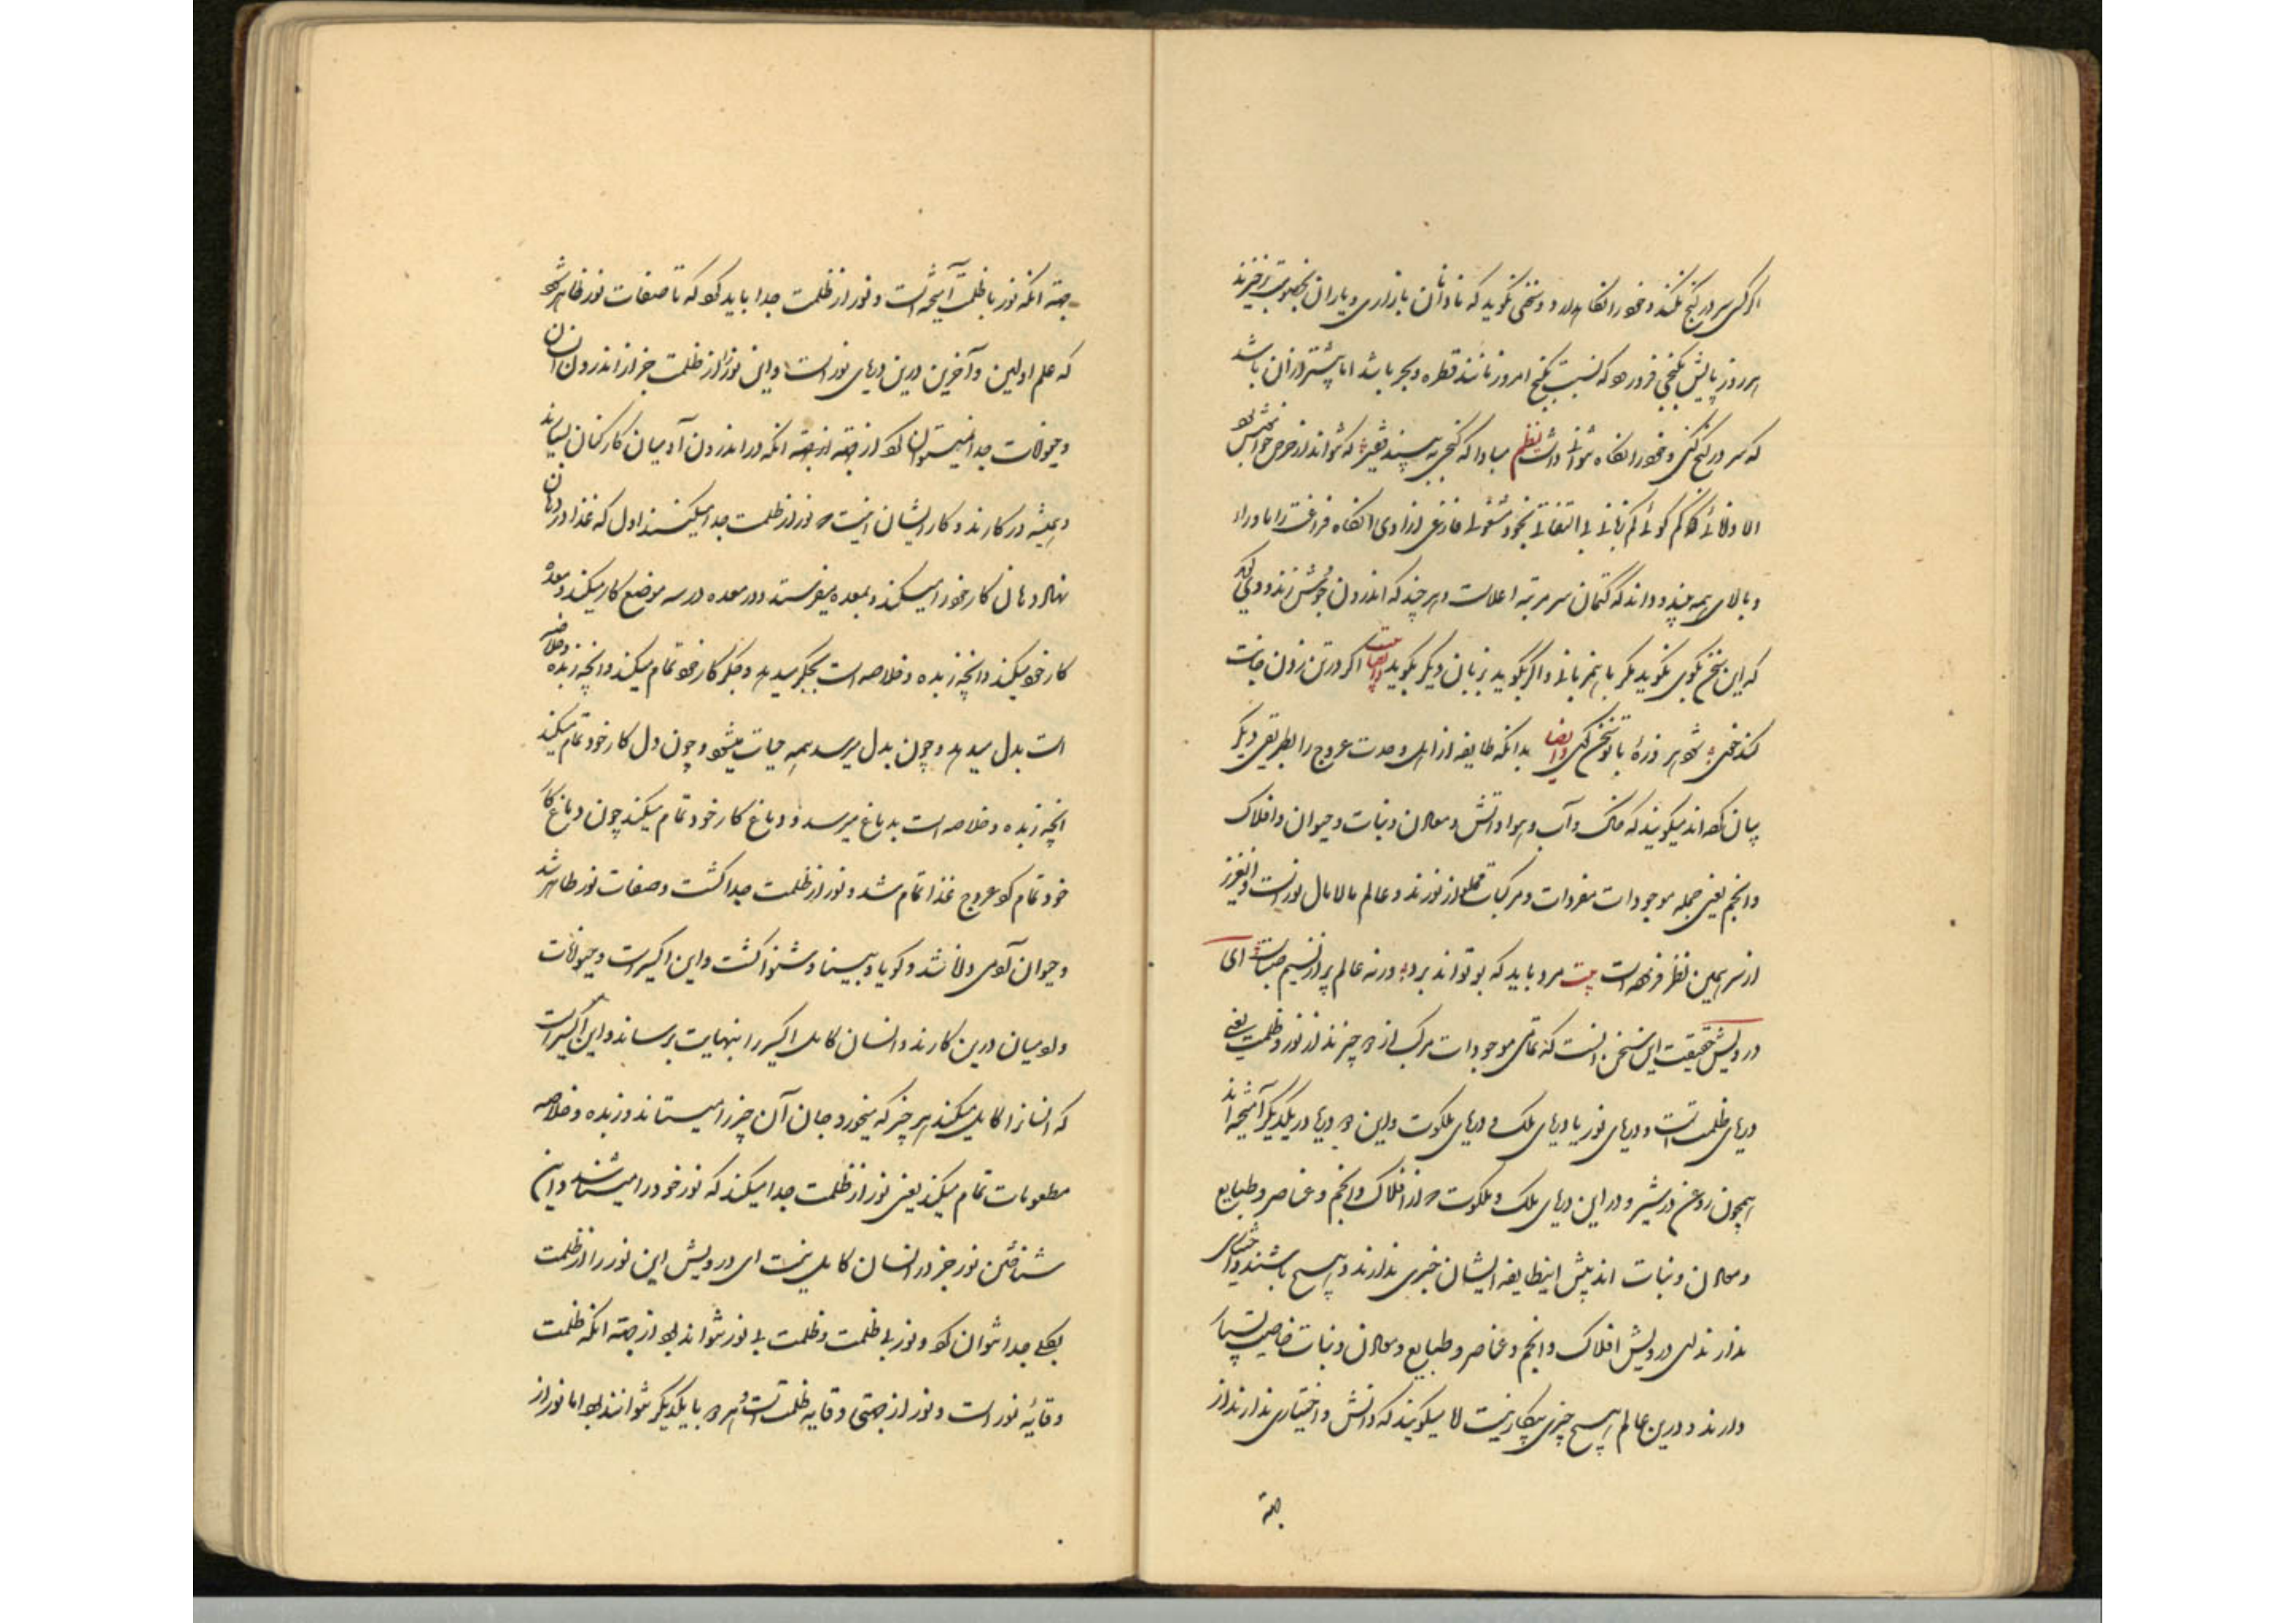 اگر کسی سر در گنج کند و خود را نگاه دارد و سخنی نگوید که نادانان بازاری و یاران بخصومت برخیزند
هر روز پایش بگنجی فرو رود که نسبت بگنج امروز مانند قطره و بحر باشد اما بیشتر از آن باشد
که سر در گنج کنی و خود را نگاه نتوانی داشت نظم مبادا که گنجی ببیند فقیر که نتواند از حرص خاموش بود
الا و لالائی کم گوئی کم زبانی بی التفاتی بخود مشغولی فارغی آزادی آنگاه فراغت را ماورای
و بالای همه بیند و داند که کتمان سر مرتبه اعلاست و هر چند که اندرون جوش زند و
که این سخن بگوی نگوید مگر با همزبانی و اگر بگوید بزبان دیگر بگوید و ایضا بیت اگر درین زدن جانت
کند خشن شود هر ذره با تو سخن کنی و ایضا بدانکه طایفه از اهل وحدت عروج را بطریق دیگر
بیان کرده‌اند میگویند که خاک و آب و هوا و آتش و معادن و نبات و حیوان و افلاک
و انجم یعنی جمله موجودات مفردات و مرکبات مملو از نورند و عالم مالامال نور است و این عزیز
از سر همین نظر فرموده است بیت مرد باید که بو تواند برد ورنه عالم پر از نسیم صباست ای
درویش حقیقت این سخن آنست که تمامی موجودات مرکب از دو چیزند از نور و ظلمت یعنی
دریای ظلمت است و دریای نور یا دریای ملک و دریای ملکوت و این دو دریا در یکدیگر آمیخته‌اند
همچون روغن در شیر و در این دریای ملک و ملکوت از افلاک و انجم و عناصر و طبایع
و معادن و نبات اند پیش اینطایفه ایشان خبری ندارند و هیچ دانش و اختیاری
ندارند ای درویش افلاک و انجم و عناصر و طبایع و معادن و نبات خاصیت بسیار
دارند و درین عالم هیچ چیزی بیکار نیست اما میگویند که دانش و اختیاری ندارند از
جهته
جهته آنکه نور با ظلمت آمیخته است و نور از ظلمت جدا باید کرد که تا صفات نور ظاهر شود
که علم اولین و آخرین درین دریای نور است و این نور را از ظلمت جز از اندرون انسان
و حیوانات جدا نمیتوان کرد از جهته آنکه در اندرون آدمیان کارکنان بسیارند
و همیشه در کارند و کار ایشان اینست که نور از ظلمت جدا میکنند اول که غذا در دهان
نهاد دهان کار خود را میکند و بمعده میفرستد و در معده در سه موضع کار میکند و معده
کار خود میکند و آنچه زبده و خلاصه است بجگر میدهد و جگر کار خود تمام میکند و آنچه زبده و خلاصه
است بدل میدهد و چون بدل میرسد همه حیات میشود و چون دل کار خود تمام میکند
آنچه زبده و خلاصه است بدماغ میرسد و دماغ کار خود تمام میکند چون دماغ کار
خود تمام کرد عروج غذا تمام شد و نور از ظلمت جدا گشت و صفات نور ظاهر شد
و حیوان آدمی دانا شد و گویا و بینا و شنوا گشت و این اکسیر است و حیوانات
و آدمیان درین کارند و انسان کامل اکسیر را بنهایت برساند و این اکسیر است
که انسان را کامل میکند هر چیز که میخورد جان آن چیز را میستاند و زبده و خلاصه
مطعومات تمام میکند یعنی نور از ظلمت جدا میکند که نور خود را میشناسد و این
شناختن نور جز در انسان کامل نیست ای درویش این نور را از ظلمت
بکلی جدا نتوان کرد و نور بی ظلمت و ظلمت بی نور نتواند بود از جهته آنکه ظلمت
وقایه نور است و نور از جهتی وقایه ظلمت است و هر دو با یکدیگر توانند بود اما نور از